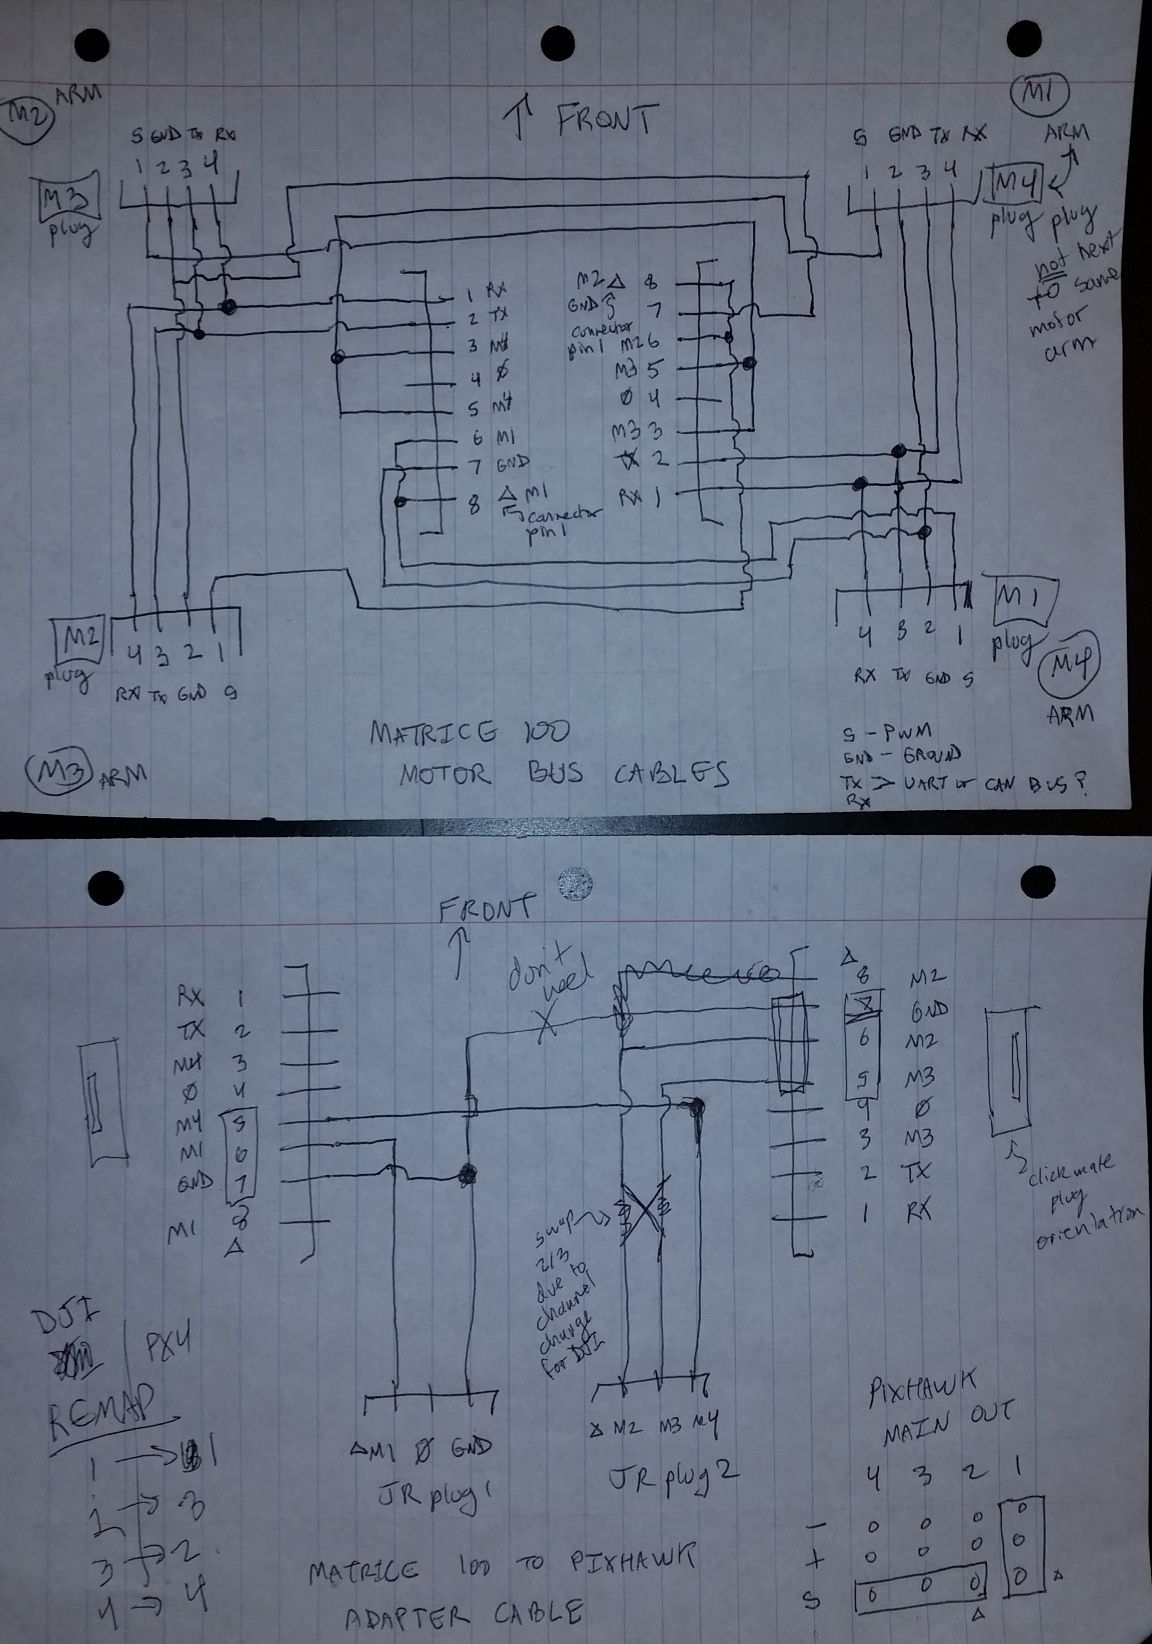 M2 ARM
↑ FRONT
M1
ARM
S GND TX RX
1 2 3 4
M3
plug
S GND TX RX
1 2 3 4
M4
plug plug
not next
to same
motor
arm
1 RX
2 TX
3 M4
4 Ø
5 M4
6 M1
7 GND
8 Δ M1
connector
pin 1
M2 Δ 8
GND 7
connector
pin 1 M2 6
M3 5
Ø 4
M3 3
TX 2
RX 1
M2
plug
4 3 2 1
RX TX GND S
M3 ARM
4 3 2 1
RX TX GND S
M1
plug
M4
ARM
MATRICE 100
MOTOR BUS CABLES
S - PWM
GND - GROUND
TX > UART or CAN BUS?
RX
FRONT
↑
don't
need
RX 1
TX 2
M4 3
Ø 4
M4 5
M1 6
GND 7
M1 8
Δ
Δ
8 M2
7 GND
6 M2
5 M3
4 Ø
3 M3
2 TX
1 RX
clickmate
plug
orientation
swap
2/3
due to
channel
change
for DJI
DJI PX4
REMAP
1 → 1
2 → 3
3 → 2
4 → 4
Δ M1 Ø GND
JR plug 1
Δ M2 M3 M4
JR plug 2
PIXHAWK
MAIN OUT
4 3 2 1
- 0 0 0 0
+ 0 0 0 0
S 0 0 0 0 Δ
Δ
MATRICE 100 TO PIXHAWK
ADAPTER CABLE